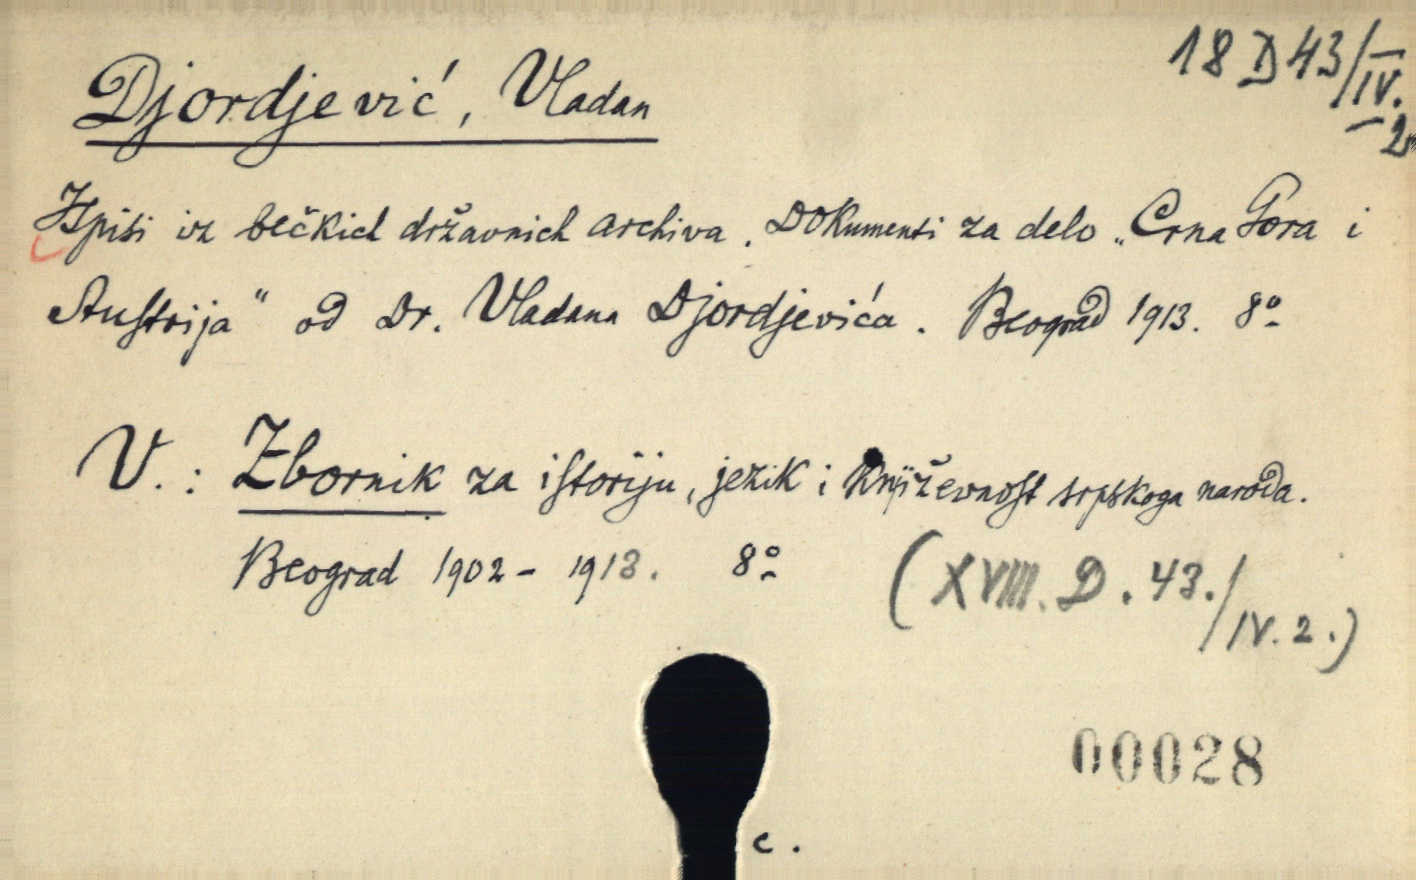 18 D 43/IV.
2
Djordjević, Vladan
Ispisi iz bečkich državnich archiva. Dokumenti za delo „Crna Gora i
Austrija“ od Dr. Vladana Djordjevića. Beograd 1913. 8º
V.: Zbornik za istoriju, jezik i književnost srpskoga naroda.
Beograd 1902-1913. 8º
(XVIII. D. 43./IV. 2.)
00028
c.